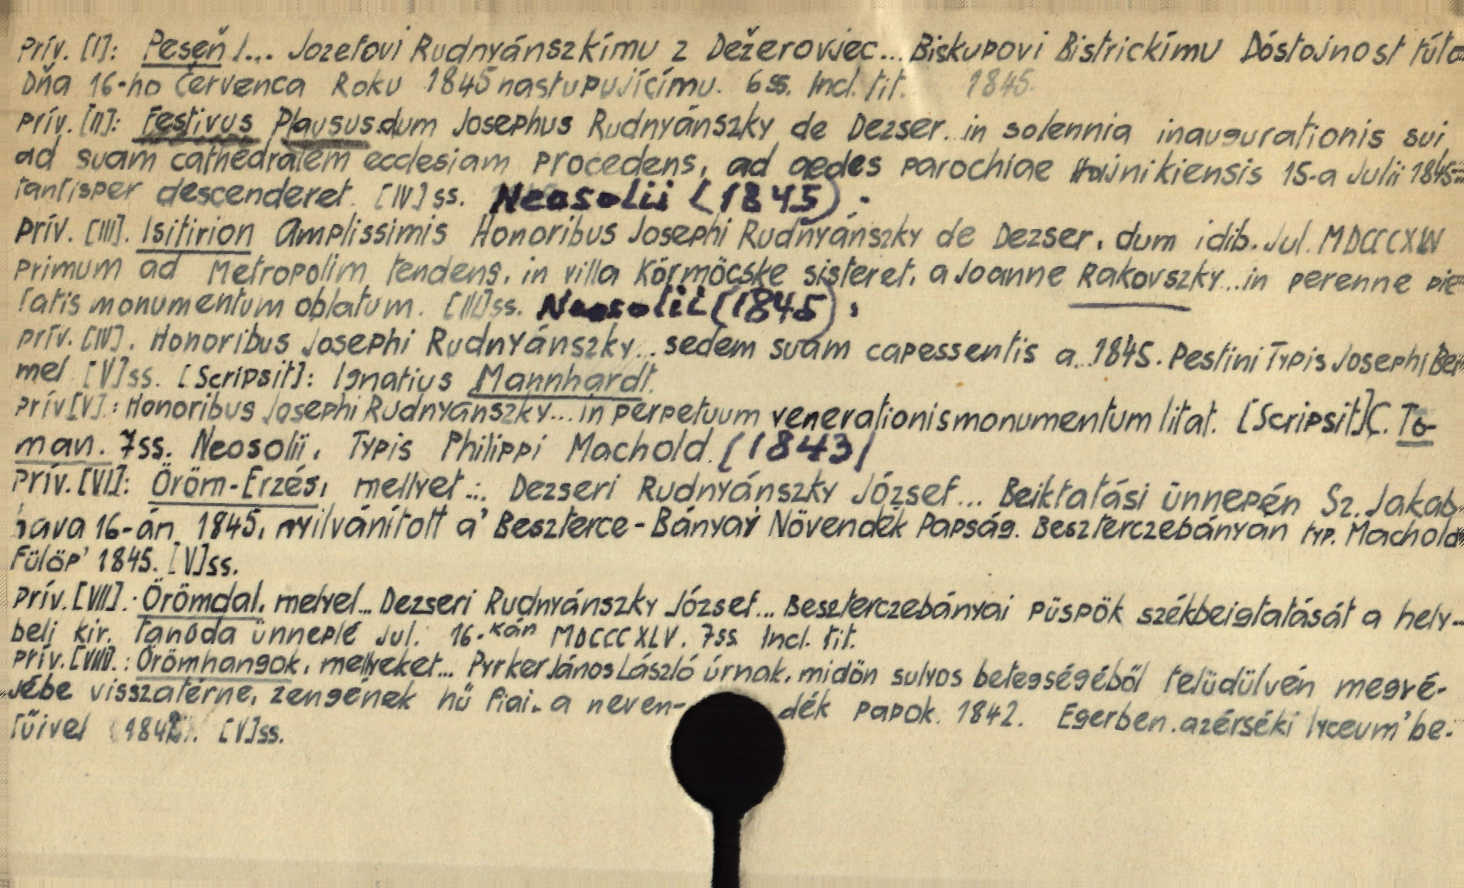 Prív. [I]: Peseň /... Jozefovi Rudnyánszkímu z Dežerovjec... Biskupovi Bistrickímu Dóstojnost túto
Dňa 16-ho Července Roku 1845 nastupujícímu. 6 ss. Incl. tit. 1845.
prív. [II]: Festivus Plausus.dum Josephus Rudnyánszky de Dezser. in solennia inaugurationis sui
ad suam cathedralem ecclesiam procedens, ad aedes parochiae Hajnikiensis 15-a Julii 1845
tantisper descenderet. [IV] ss. Neosolii (1845).
prív. [III]. Isitirion Amplissimis Honoribus Josephi Rudnyánszky de Dezser, dum idib. Jul. MDCCCXLV
primum ad Metropolim tendens, in villa Körmöcske sisteret, a Joanne Rakovszky... in perenne pie
tatis monumentum oblatum. [III] ss. Neosolii (1845).
prív. [IV]. Honoribus Josephi Rudnyánszky... sedem suam capessentis a. 1845. Pestini Typis Josephi Bei-
mel [V] ss. [Scripsit]: Ignatius Mannhardt.
prív [V].: Honoribus Josephi Rudnyánszky... in perpetuum venerationis monumentum litat. [Scripsit] C. To-
man. 7 ss. Neosolii, Typis Philippi Machold. (1843)
prív. [VI]: Öröm-Érzés, mellyet... Dezseri Rudnyánszky József... Beiktatási ünnepén Sz. Jakab
hava 16-án 1845, nyilvánított a' Beszterce-Bányai Növendék Papság. Beszterczebányan typ. Machold
Fülöp' 1845. [V] ss.
prív. [VII].. Örömdal, melyel... Dezseri Rudnyánszky József... Beszterczebányai püspök székbeigtatását a hely-
beli kir. tanoda ünneplé Jul. 16.-kán MDCCCXLV. 7 ss Incl. tit.
prív. [VIII].: Örömhangok, mellyeket... Pyrker János László úrnak, midőn sulyos betegségéből felüdülvén megyé-
jébe visszatérne, zengének hű fiai, a neven- dék papok. 1842. Egerben. az érséki lyceum' be-
tűivel (1842). [V] ss.